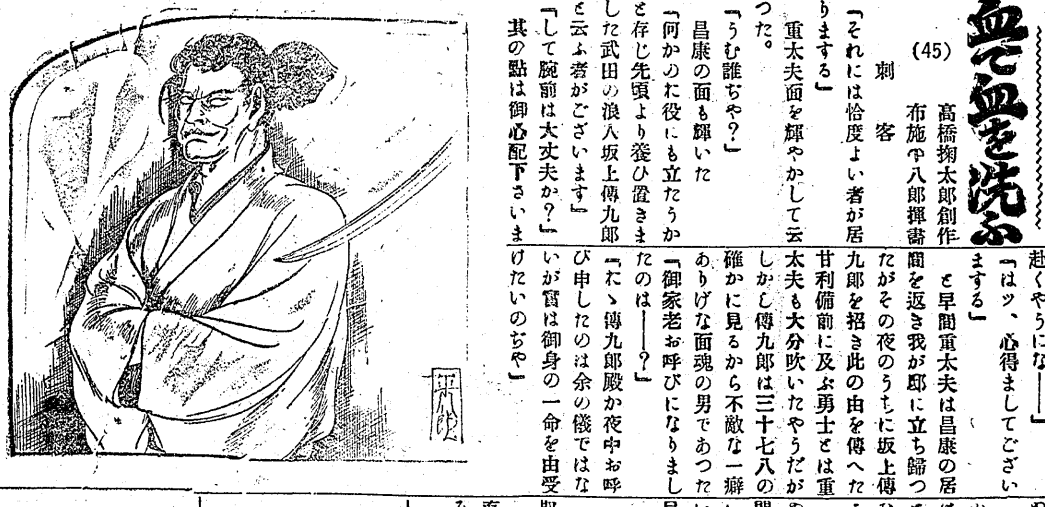 血で血を洗ふ
高橋掬太郎創作
布施 八郎揮畵
(45)
刺客
『それには恰度よい者が居
りまする』
重太夫面を輝やかして云
つた。
『うむ誰ぢや？』
昌康の面も輝いた
『何かのお役にも立たうか
と存じ先頃より養ひ置きま
した武田の浪人坂上傳九郎
と云ふ者がございます』
『して腕前は大丈夫か？』
其の點は御心配下さいま
赴くやうにな――』
『はッ、心得ましてござい
まする』
と早間重太夫は昌康の居
間を返き我が邸に立ち歸つ
たがその夜のうちに坂上傳
九郎を招き此の由を傳へた
甘利備前に及ぶ勇士とは重
太夫も大分吹いたやうだが
しかし傳九郎は三十七八の
確かに見るから不敵な一癖
ありげな面魂の男であつた
『御家老お呼びになりまし
たのは――？』
『おゝ傳九郎殿か夜中お呼
び申したのは余の儀ではな
いが實は御身の一命を由受
けたいのぢや』